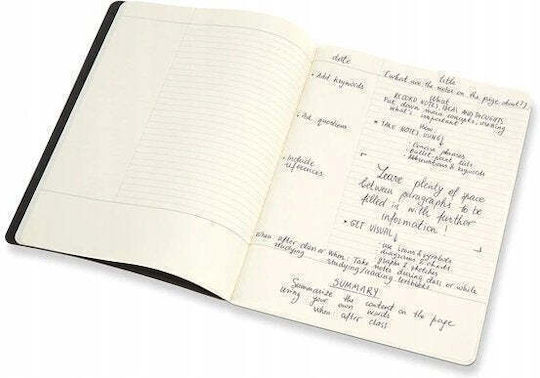 date
title
(what are the notes on the page about?)
• Add keywords
What
RECORD NOTES, IDEAS AND THOUGHTS
Put down main concepts, meaning
what's important
How
• Ask questions
• TAKE NOTES USING
• Concise phrases
• Bullet point lists
• Abbreviations & keywords
• Include
references
Leave plenty of space
between paragraphs to be
filled in with further
information!
• GET VISUAL!
• use icons & symbols
diagrams & charts
graphs & sketches
When after class or
studying
When: Take notes during class or while
studying/reading textbooks
SUMMARY
Summarize the content on the page
using your own words
when after class